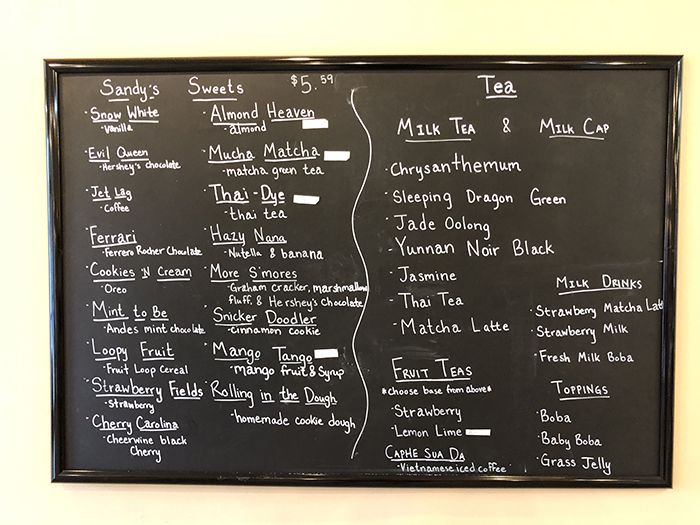 Sandy's Sweets $5.59
Snow White
· Vanilla
· Evil Queen
· Hershey's chocolate
· Jet Lag
· Coffee
· Ferrari
· Ferrero Rocher Chocolate
· Cookies N Cream
· Oreo
· Mint to Be
· Andes mint chocolate
· Loopy Fruit
· Fruit Loop Cereal
· Strawberry Fields
· Strawberry
· Cherry Carolina
· Cheerwine black
Cherry
· Almond Heaven
· almond
· Mucha Matcha
· matcha green tea
· Thai-Dye
· thai tea
· Hazy Nana
· Nutella & banana
· More S'mores
· Graham cracker, marshmallow
fluff, & Hershey's chocolate
· Snicker Doodler
· cinnamon cookie
· Mango Tango
· mango fruit & syrup
· Rolling in the Dough
· homemade cookie dough
Tea
Milk Tea & Milk Cap
· Chrysanthemum
· Sleeping Dragon Green
· Jade Oolong
· Yunnan Noir Black
· Jasmine
· Thai Tea
· Matcha Latte
Fruit Teas
*Choose base from above*
· Strawberry
· Lemon Lime
Caphe Sua Da
· Vietnamese iced coffee
Milk Drinks
· Strawberry Matcha Latt
· Strawberry Milk
· Fresh Milk Boba
Toppings
· Boba
· Baby Boba
· Grass Jelly